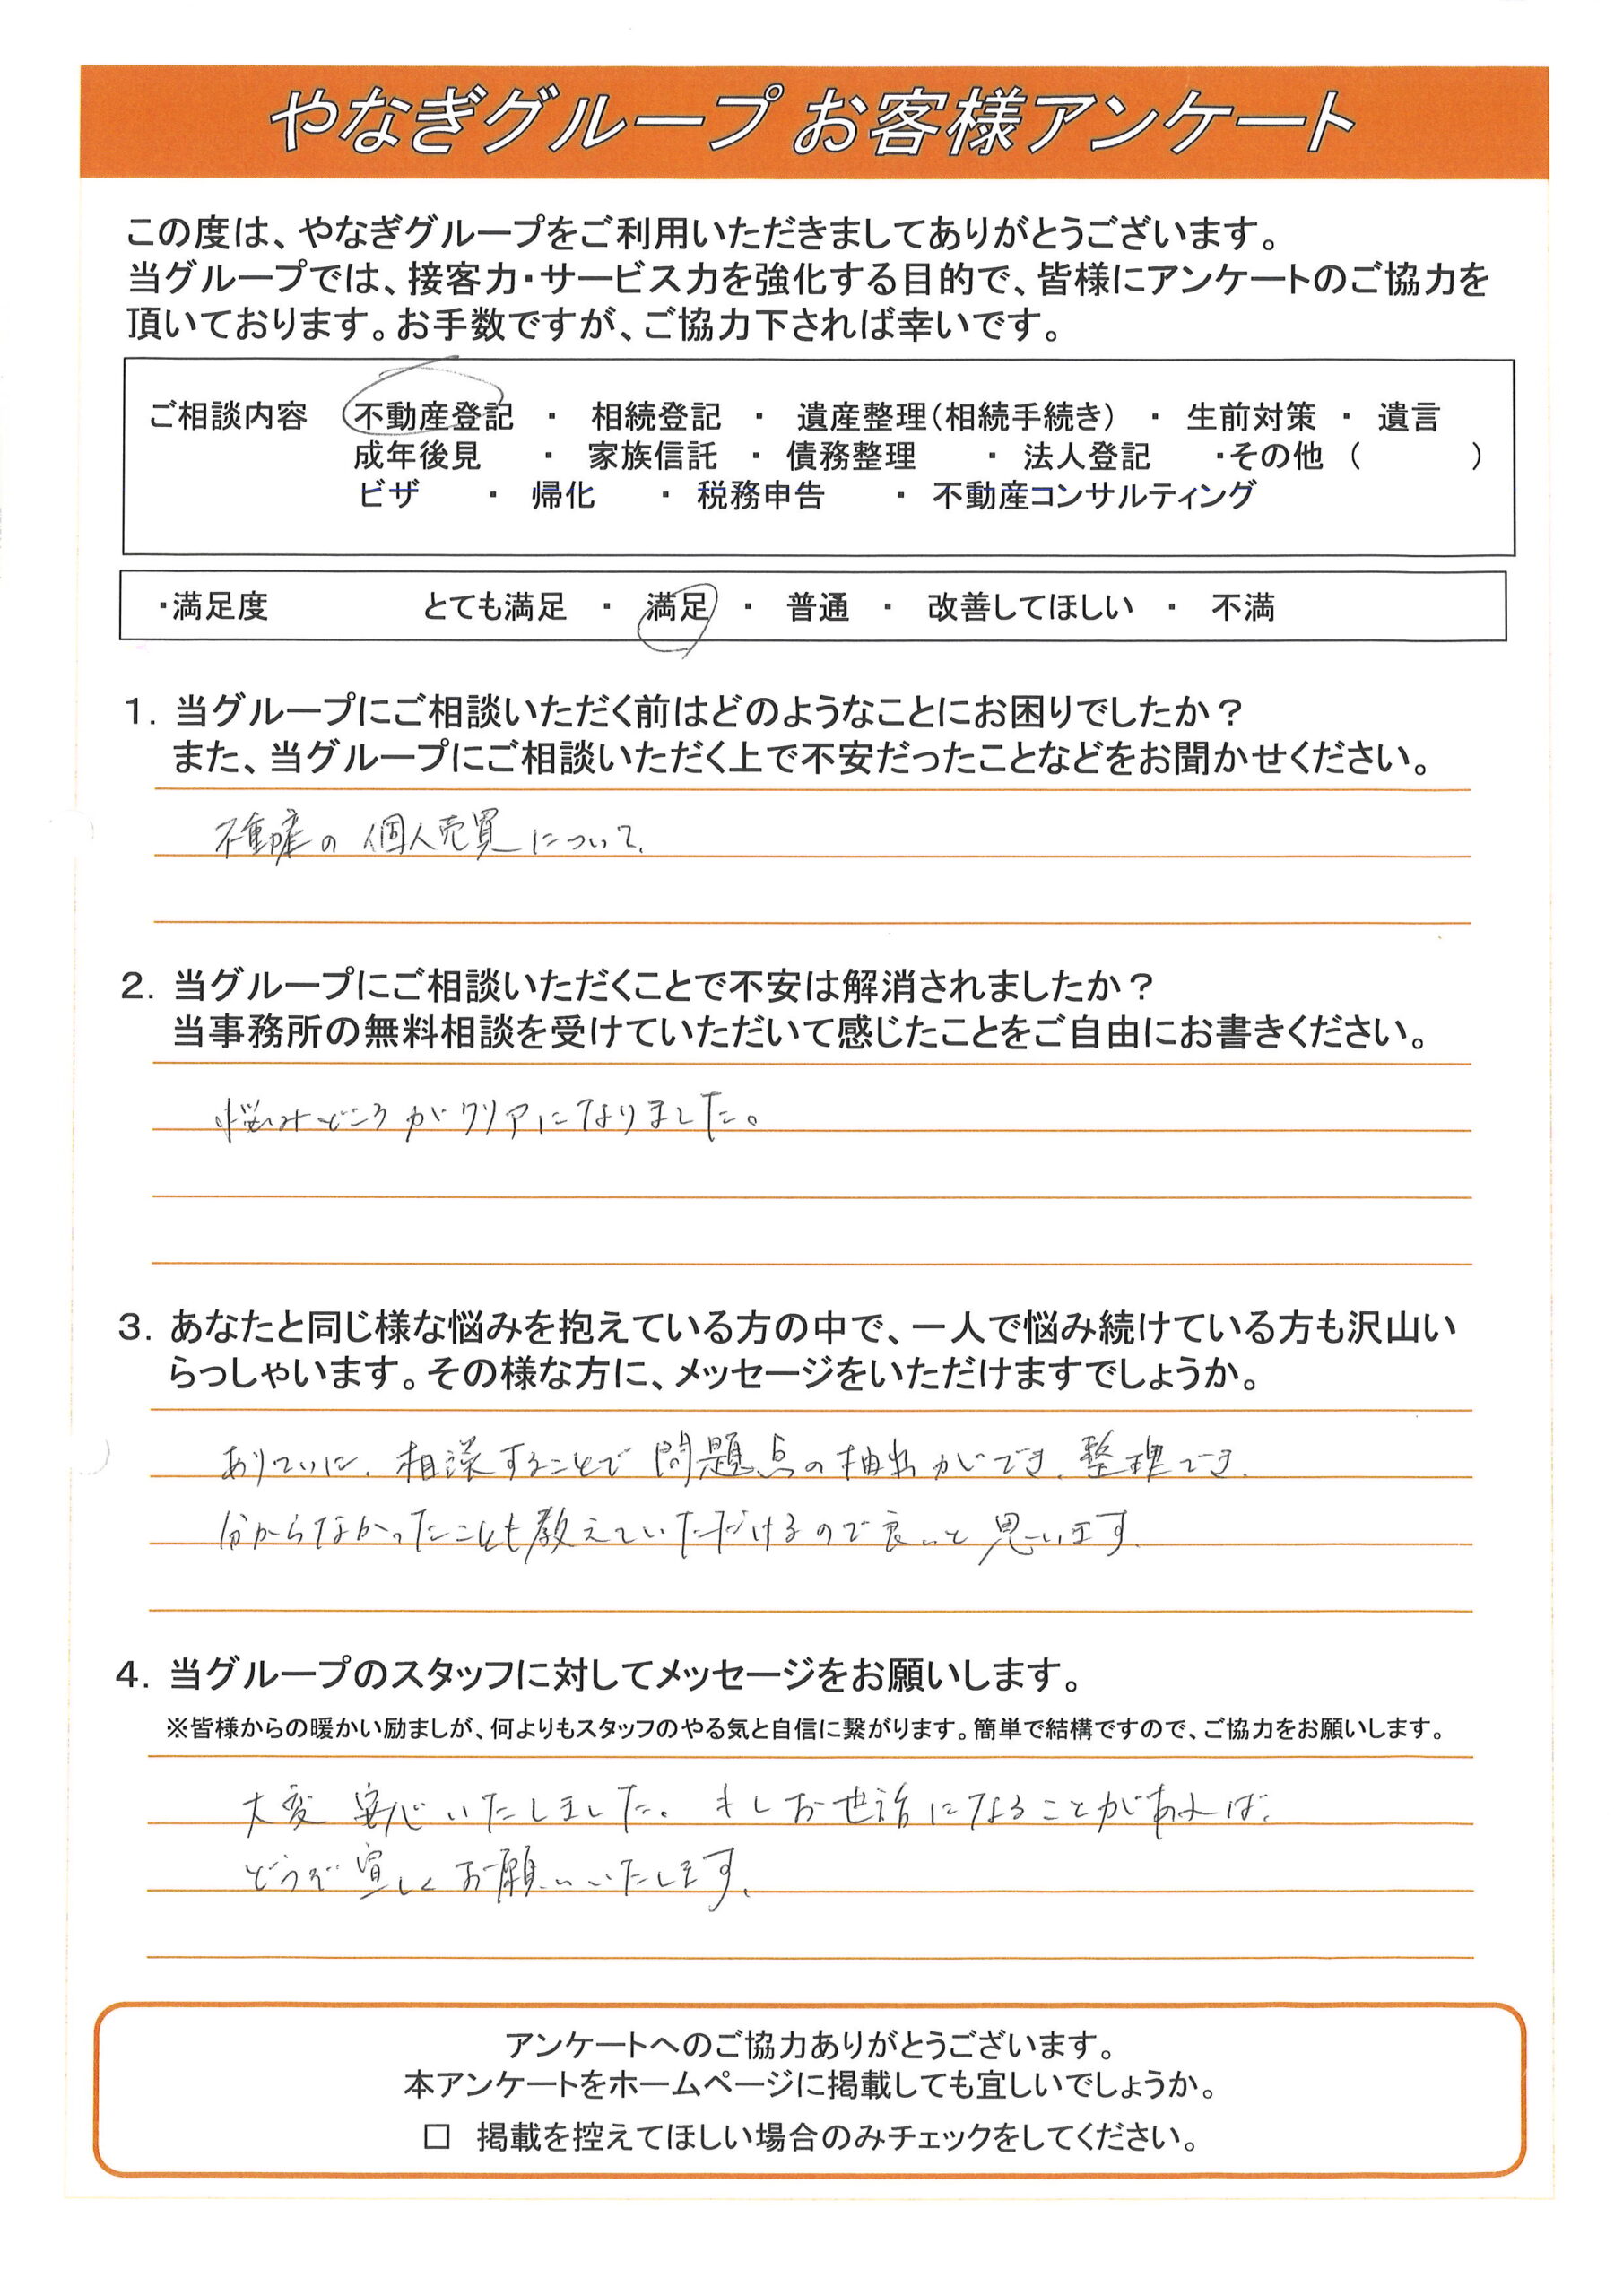 やなぎグループ お客様アンケート
この度は、やなぎグループをご利用いただきましてありがとうございます。
当グループでは、接客力・サービス力を強化する目的で、皆様にアンケートのご協力を
頂いております。お手数ですが、ご協力下されば幸いです。
ご相談内容 不動産登記 ・ 相続登記 ・ 遺産整理(相続手続き) ・ 生前対策 ・ 遺言
成年後見 ・ 家族信託 ・ 債務整理 ・ 法人登記 ・その他 ( )
ビザ ・ 帰化 ・ 税務申告 ・ 不動産コンサルティング
・満足度 とても満足 ・ 満足 ・ 普通 ・ 改善してほしい ・ 不満
1. 当グループにご相談いただく前はどのようなことにお困りでしたか？
また、当グループにご相談いただく上で不安だったことなどをお聞かせください。
不動産の個人売買について、
2. 当グループにご相談いただくことで不安は解消されましたか？
当事務所の無料相談を受けていただいて感じたことをご自由にお書きください。
悩みどころがクリアになりました。
3. あなたと同じ様な悩みを抱えている方の中で、一人で悩み続けている方も沢山い
らっしゃいます。その様な方に、メッセージをいただけますでしょうか。
ありていに、相談することで問題点の抽出ができ、整理でき、
分からなかったことも教えていただけるので良いと思います。
4. 当グループのスタッフに対してメッセージをお願いします。
※皆様からの暖かい励ましが、何よりもスタッフのやる気と自信に繋がります。簡単で結構ですので、ご協力をお願いします。
大変安心いたしました。もしお世話になることがあれば、
どうぞ宜しくお願いいたします。
アンケートへのご協力ありがとうございます。
本アンケートをホームページに掲載しても宜しいでしょうか。
□ 掲載を控えてほしい場合のみチェックをしてください。